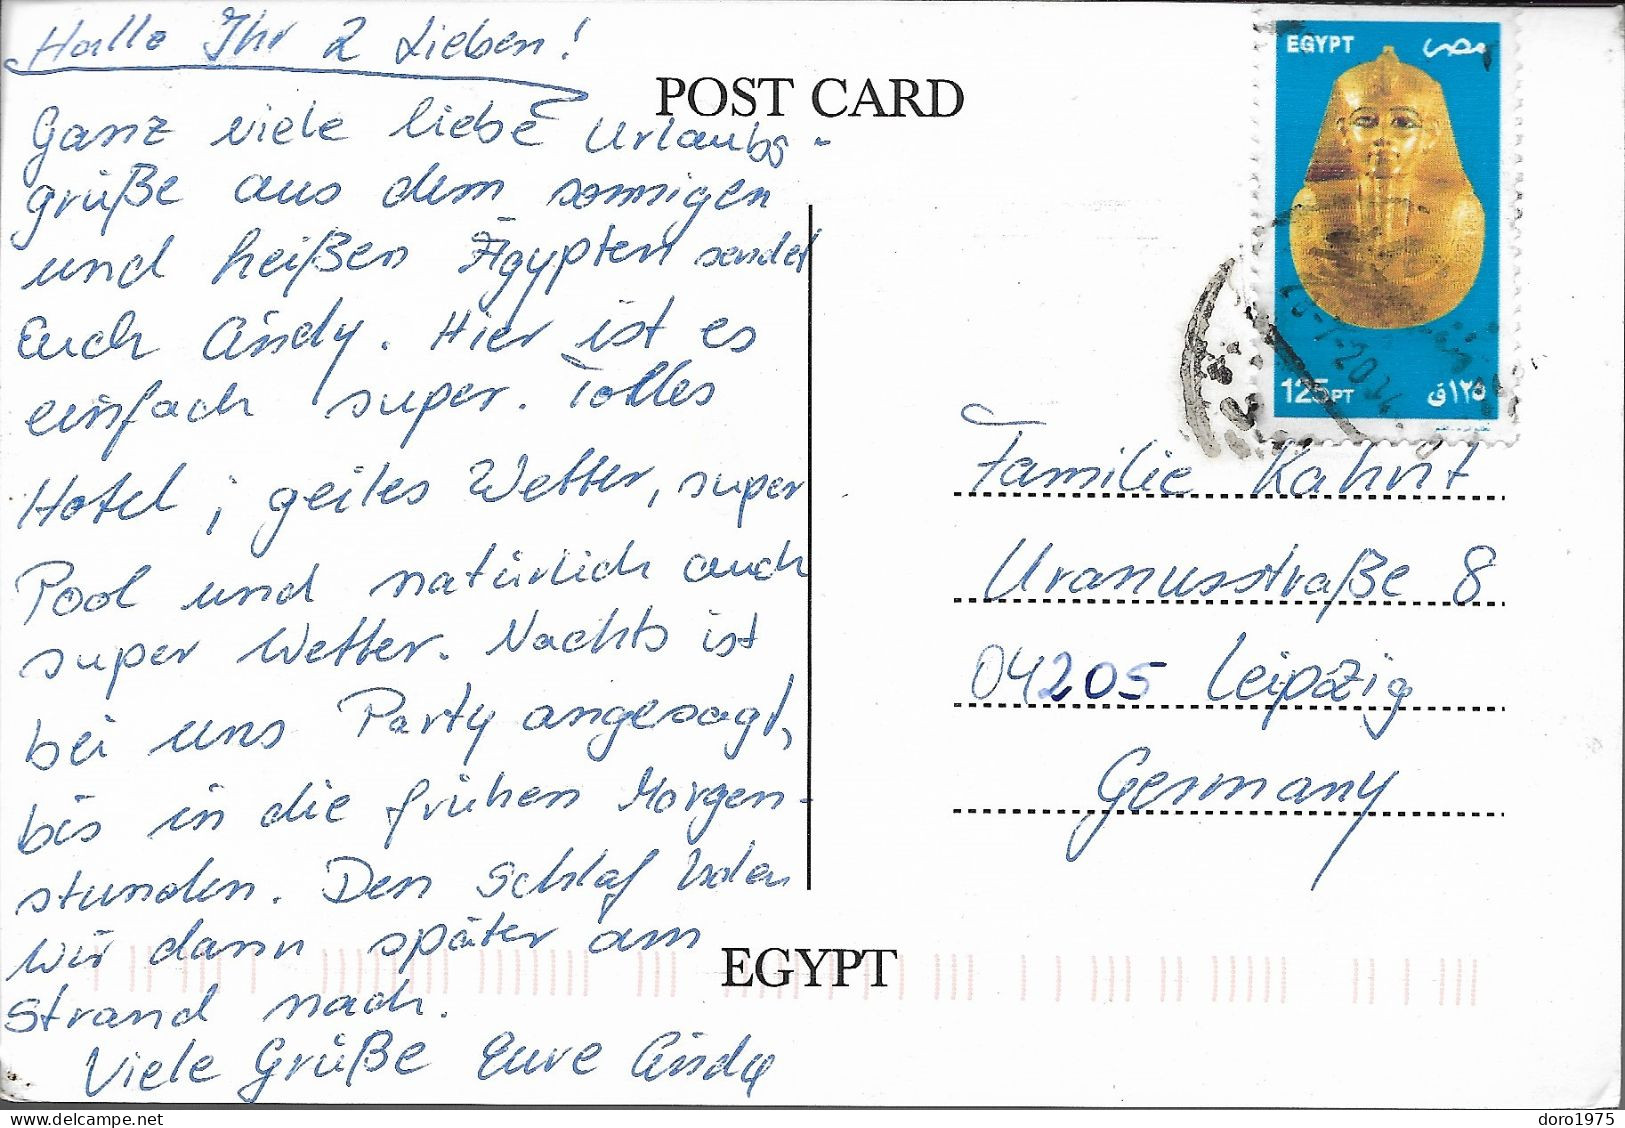 Hallo Ihr 2 Lieben!
Ganz viele liebe Urlaubs-
grüße aus dem sonnigen
und heißen Ägypten sendet
Euch Cindy. Hier ist es
einfach super. Tolles
Hotel, geiles Wetter, super
Pool und natürlich auch
super Wetter. Nachts ist
bei uns Party angesagt,
bis in die frühen Morgen-
stunden. Den Schlaf holen
wir dann später am
Strand nach.
Viele Grüße Eure Cindy
POST CARD
EGYPT مصر
125PT ١٢٥ق
Familie Kahnt
Uranusstraße 8
04205 Leipzig
Germany
EGYPT
https://www.delcampe.net
doro1975